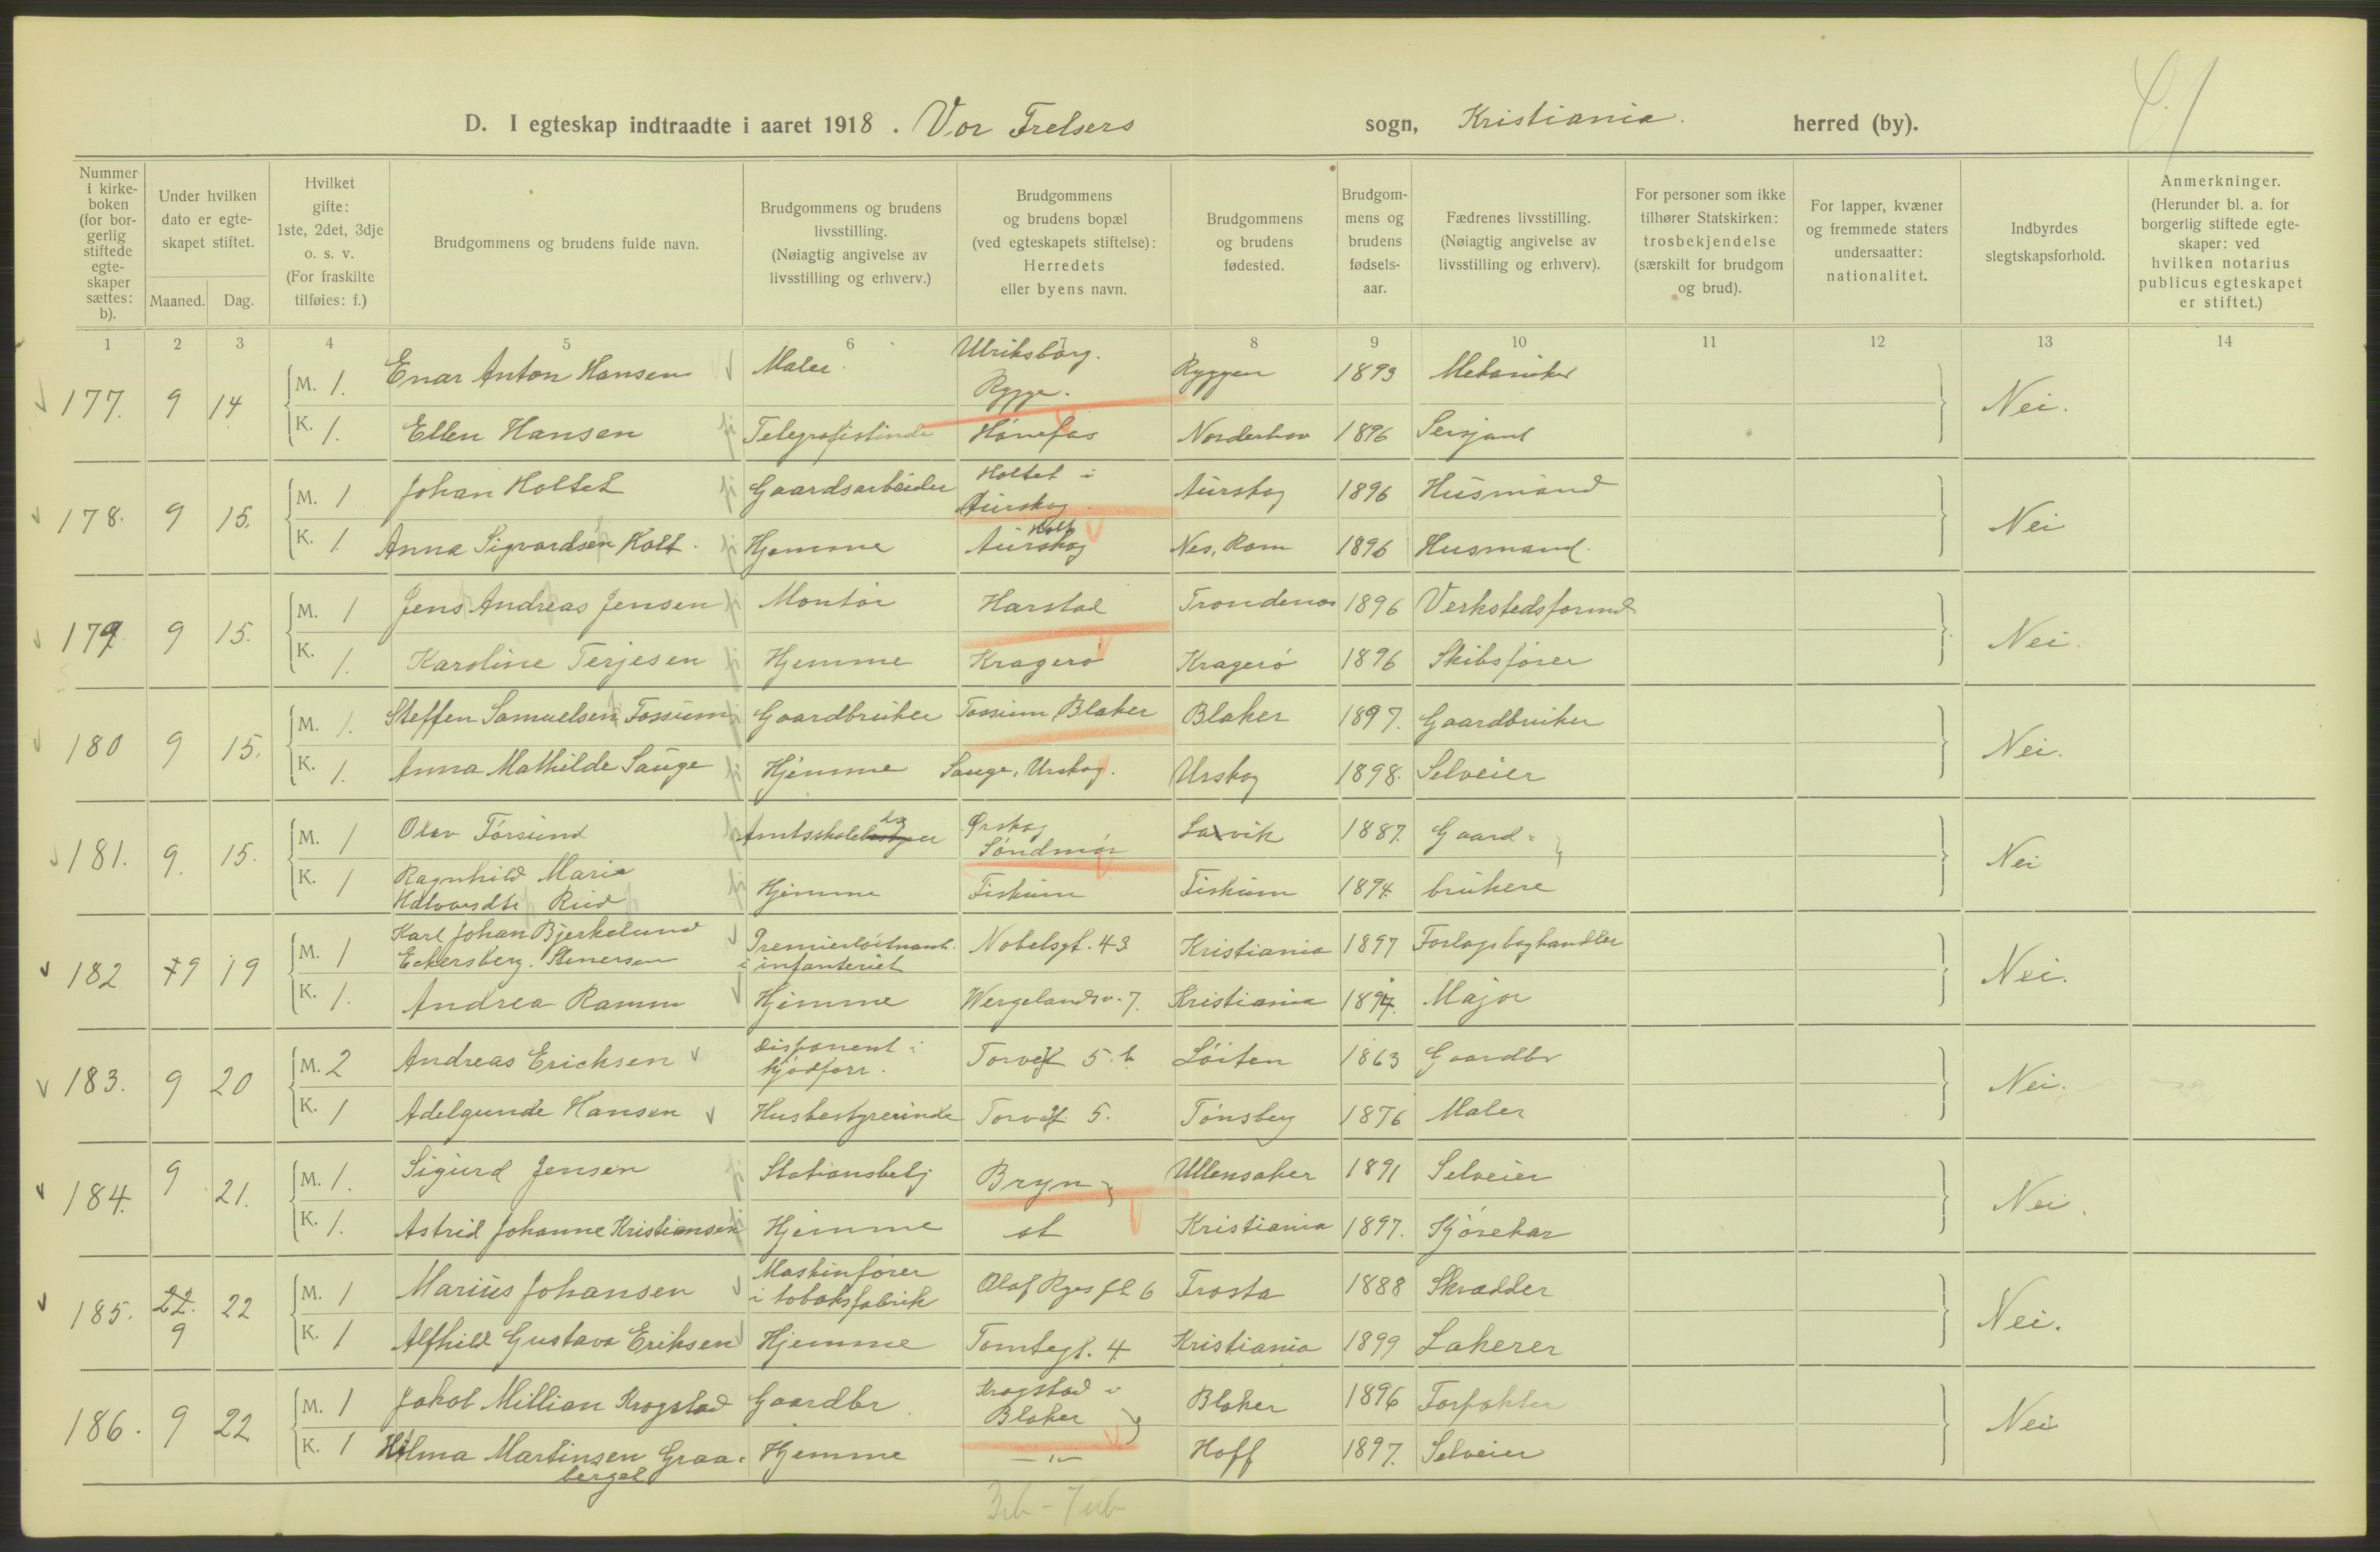 D. I egteskap indtraadte i aaret 1918. Vor Frelsers sogn, Kristiania. herred (by).
Nummer i kirkeboken (for borgerlig stiftede egteskaper sættes: b).
Under hvilken dato er egteskapet stiftet.
Maaned. Dag.
Hvilket gifte: 1ste, 2det, 3dje o. s. v. (For fraskilte tilføies: f.)
Brudgommens og brudens fulde navn.
Brudgommens og brudens livsstilling. (Nøiagtig angivelse av livsstilling og erhverv.)
Brudgommens og brudens bopæl (ved egteskapets stiftelse): Herredets eller byens navn.
Brudgommens og brudens fødested.
Brudgommens og brudens fødselsaar.
Fædrenes livsstilling. (Nøiagtig angivelse av livsstilling og erhverv).
For personer som ikke tilhører Statskirken: trosbekjendelse (særskilt for brudgom og brud).
For lapper, kvæner og fremmede staters undersaatter: nationalitet.
Indbyrdes slegtskapsforhold.
Anmerkninger. (Herunder bl. a. for borgerlig stiftede egteskaper: ved hvilken notarius publicus egteskapet er stiftet.)
1 2 3 4 5 6 7 8 9 10 11 12 13 14
177. 9 14 M. 1. Enar Anton Hansen Maler. Ulriksborg. Rygge. Ryggen 1893 Mekaniker Nei.
K. 1. Ellen Hansen Telegrafistinde Hønefos Norderhov 1896 Sersjant
178. 9 15. M. 1 Johan Holtet Gaardsarbeider Holtet i Aurskog Aurskog 1896 Husmand Nei
K. 1. Anna Sigvardsen Holt. Hjemme Holt Aurskog Nes, Rom 1896 Husmand.
179 9 15. M. 1 Jens Andreas Jensen Montør Harstad Trondenes 1896 Verkstedsformd Nei.
K. 1. Karoline Terjesen Hjemme Kragerø Kragerø 1896 Skibsfører
180 9 15. M. 1. Steffen Samuelsen Fossum Gaardbruker Fossum Blaker Blaker 1897. Gaardbruker Nei.
K. 1. Anna Mathilde Sauge Hjemme Sauge, Urskog. Urskog 1898. Selveier
181. 9. 15. M. 1 Olav Tørsund Ørskog Søndmør Lavvik 1887. Gaard= Nei
K. 1 Ragnhild Marie Halvorsdtr Ruid Hjemme Fiskum Fiskum 1894. brukere
182 9 19 M. 1 Karl Johan Bjerkelund Eckersberg. Stenersen Premierløitnant. i infanteriet Nobelsgt. 43 Kristiania 1897 Forlagsboghandler Nei.
K. 1. Andrea Ramm Hjemme Wergelandsv. 7. Kristiania 1897. Major
183. 9 20 M. 2 Andreas Ericksen Disponent i kjødforr. Torvet 5. b Løiten 1863 Gaardbr Nei.
K. 1 Adelgunde Hansen Husbestyrerinde Torvet 5. Tønsberg 1876 Maler
184. 9 21. M. 1. Sigurd Jensen Stationsbetj Bryn Ullensaker 1891 Selveier Nei.
K. 1. Astrid Johanne Kristiansen Hjemme st Kristiania 1897. Kjørekar
185. 22. 9 22 M. 1 Marius Johansen Maskinfører i tobaksfabrik Olaf Ryes pl 6 Frosta 1888 Skrædder Nei.
K. 1 Alfhild Gustava Eriksen Hjemme Tomtegt. 4 Kristiania 1899 Lakerer
186. 9 22 M. 1 Jakob Millian Krogstad Gaardbr. Krogstad i Blaker Blaker 1896 Forpakter Nei
K. 1 Hilma Martinsen Graabergel Hjemme — " — Hoff 1897. Selveier